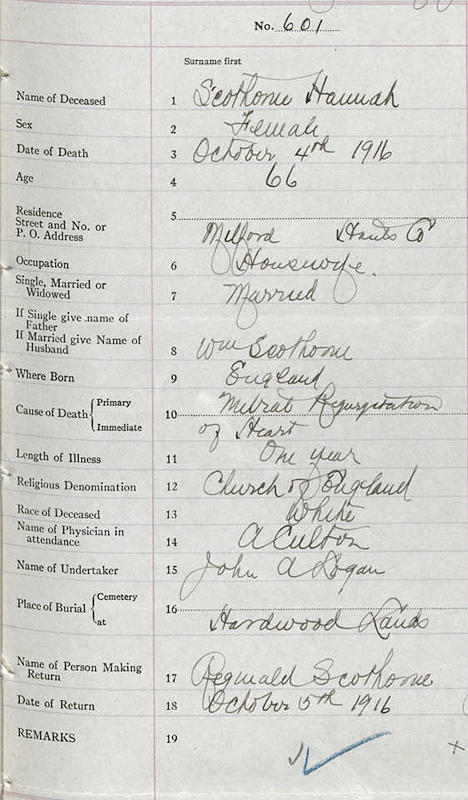 No. 601
Surname first
Name of Deceased 1 Scothorne Hannah
Sex 2 Female
Date of Death 3 October 4th 1916
Age 4 66
Residence
Street and No. or
P. O. Address
5
Milford Hants Co
Occupation 6 Housewife.
Single, Married or
Widowed 7 Married
If Single give name of
Father
If Married give Name of
Husband 8 Wm Scothorne
Where Born 9 England
Cause of Death { Primary
Immediate
10 Mitral Regurgitation
of Heart
Length of Illness 11 One year
Religious Denomination 12 Church of England
Race of Deceased 13 White
Name of Physician in
attendance 14 A Culton
Name of Undertaker 15 John A Logan
Place of Burial { Cemetery
at
16
Hardwood Lands
Name of Person Making
Return 17 Reginald Scothorne
Date of Return 18 October 5th 1916
REMARKS 19